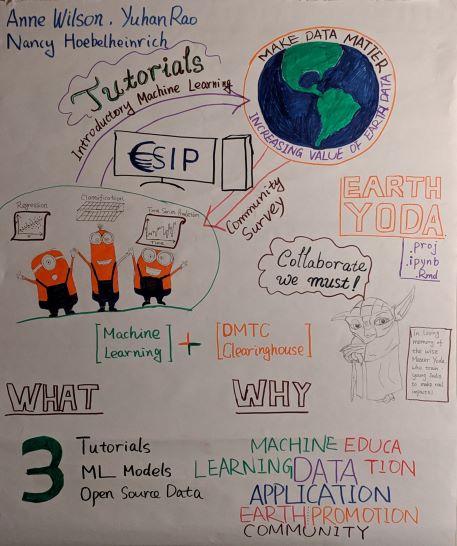 Anne Wilson, Yuhan Rao
Nancy Hoebelheinrich
Tutorials
Introductory Machine Learning
MAKE DATA MATTER
INCREASING VALUE OF EARTH DATA
ESIP
Community
Survey
Regression
Classification
Time Series Prediction
Time
EARTH
YODA
.proj
.ipynb
.Rmd
Collaborate
we must!
[Machine
Learning]
+
[DMTC
Clearinghouse]
In loving
memory of
the wise
Master Yoda
who train
young Jedis
to make real
impacts!
WHAT
WHY
3
Tutorials
ML Models
Open Source Data
MACHINE EDUCA
LEARNING DATA TION
APPLICATION
EARTH PROMOTION
COMMUNITY